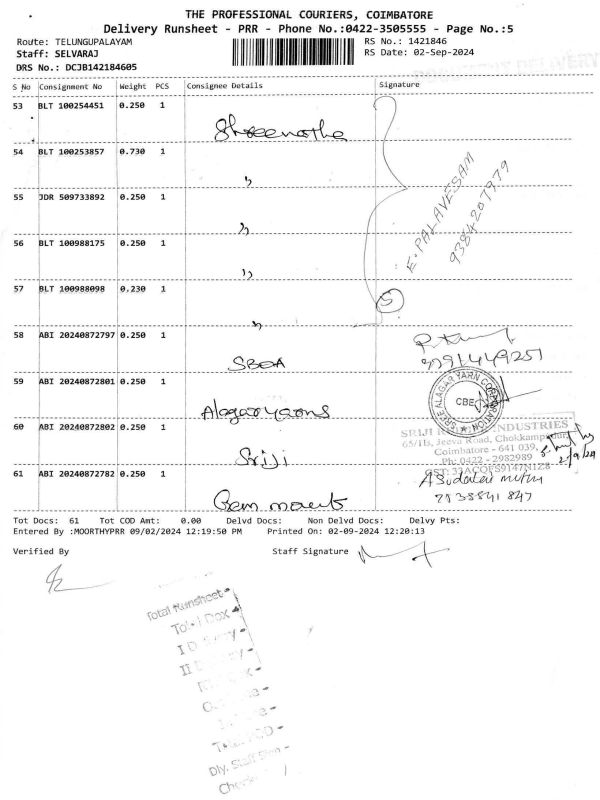 THE PROFESSIONAL COURIERS, COIMBATORE
Delivery Runsheet - PRR - Phone No.:0422-3505555 - Page No.:5
Route: TELUNGUPALAYAM
RS No.: 1421846
Staff: SELVARAJ
RS Date: 02-Sep-2024
DRS No.: DCJB142184605
S No Consignment No Weight PCS Consignee Details Signature
53 BLT 100254451 0.250 1
54 BLT 100253857 0.730 1
55 JDR 509733892 0.250 1
E. PALAVESAM
9384207979
56 BLT 100988175 0.250 1
57 BLT 100988098 0.230 1
5
58 ABI 20240872797 0.250 1 SBOA
59 ABI 20240872801 0.250 1
SREE ALAGAR YARN CORPORATION
CBE
60 ABI 20240872802 0.250 1 Sriji
SRIJI INDUSTRIES
65/1b, Jeeva Road, Chokkampudur,
Coimbatore - 641 039.
Ph: 0422 - 2982989
2/9/24
61 ABI 20240872782 0.250 1
Tot Docs: 61 Tot COD Amt: 0.00 Delvd Docs: Non Delvd Docs: Delvy Pts:
Entered By :MOORTHYPRR 09/02/2024 12:19:50 PM Printed On: 02-09-2024 12:20:13
Verified By Staff Signature
Total Runsheet -
Total Dox -